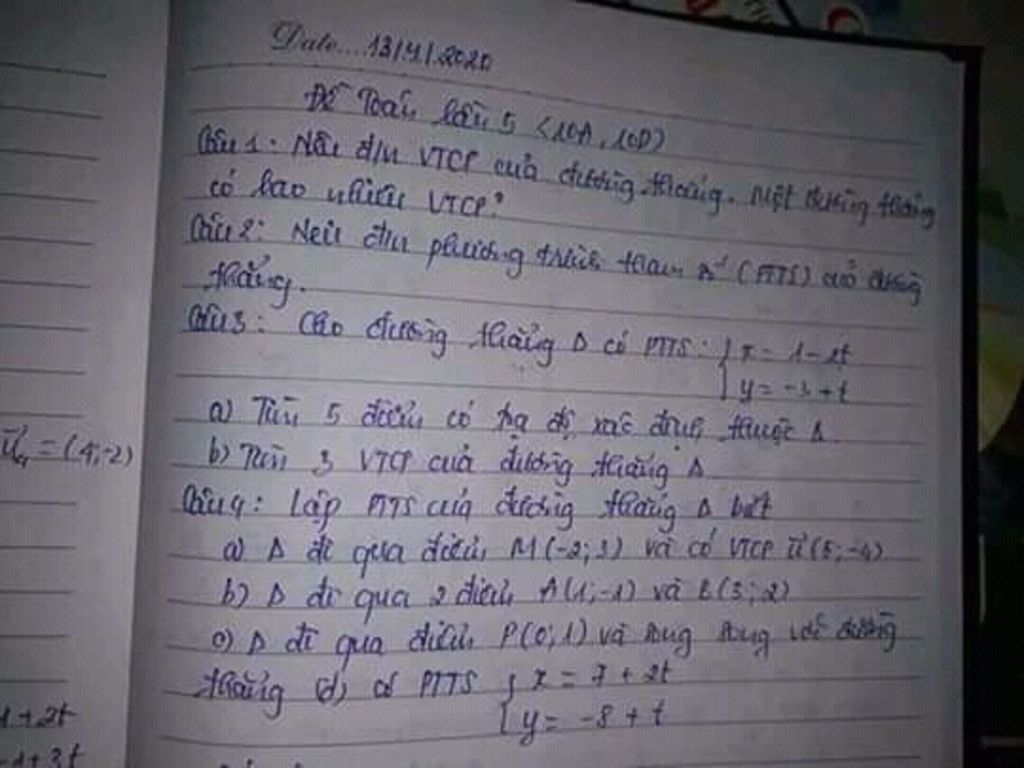 Date....13/4/2020
Đề Toán lần 5 (10A, 10D)
Câu 1. Nêu đ/n VTCP của đường thẳng. Một đường thẳng
có bao nhiêu VTCP?
Câu 2: Nêu đ/n phương trình tham số (PTTS) của đường
thẳng.
Câu 3: Cho đường thẳng Δ có PTTS: { x = 1 - 2t
y = -3 + t
a) Tìm 5 điểm có tọa độ xác định thuộc Δ
b) Tìm 3 VTCP của đường thẳng Δ
Câu 4: Lập PTTS của đường thẳng Δ biết
a) Δ đi qua điểm M(-2; 3) và có VTCP u⃗(5; -4)
b) Δ đi qua 2 điểm A(1; -1) và B(3; 2)
c) Δ đi qua điểm P(0; 1) và song song với đường
thẳng (d) có PTTS { x = 7 + 2t
y = -8 + t
u⃗₄ = (4; -2)
1 + 2t
-1 + 3t